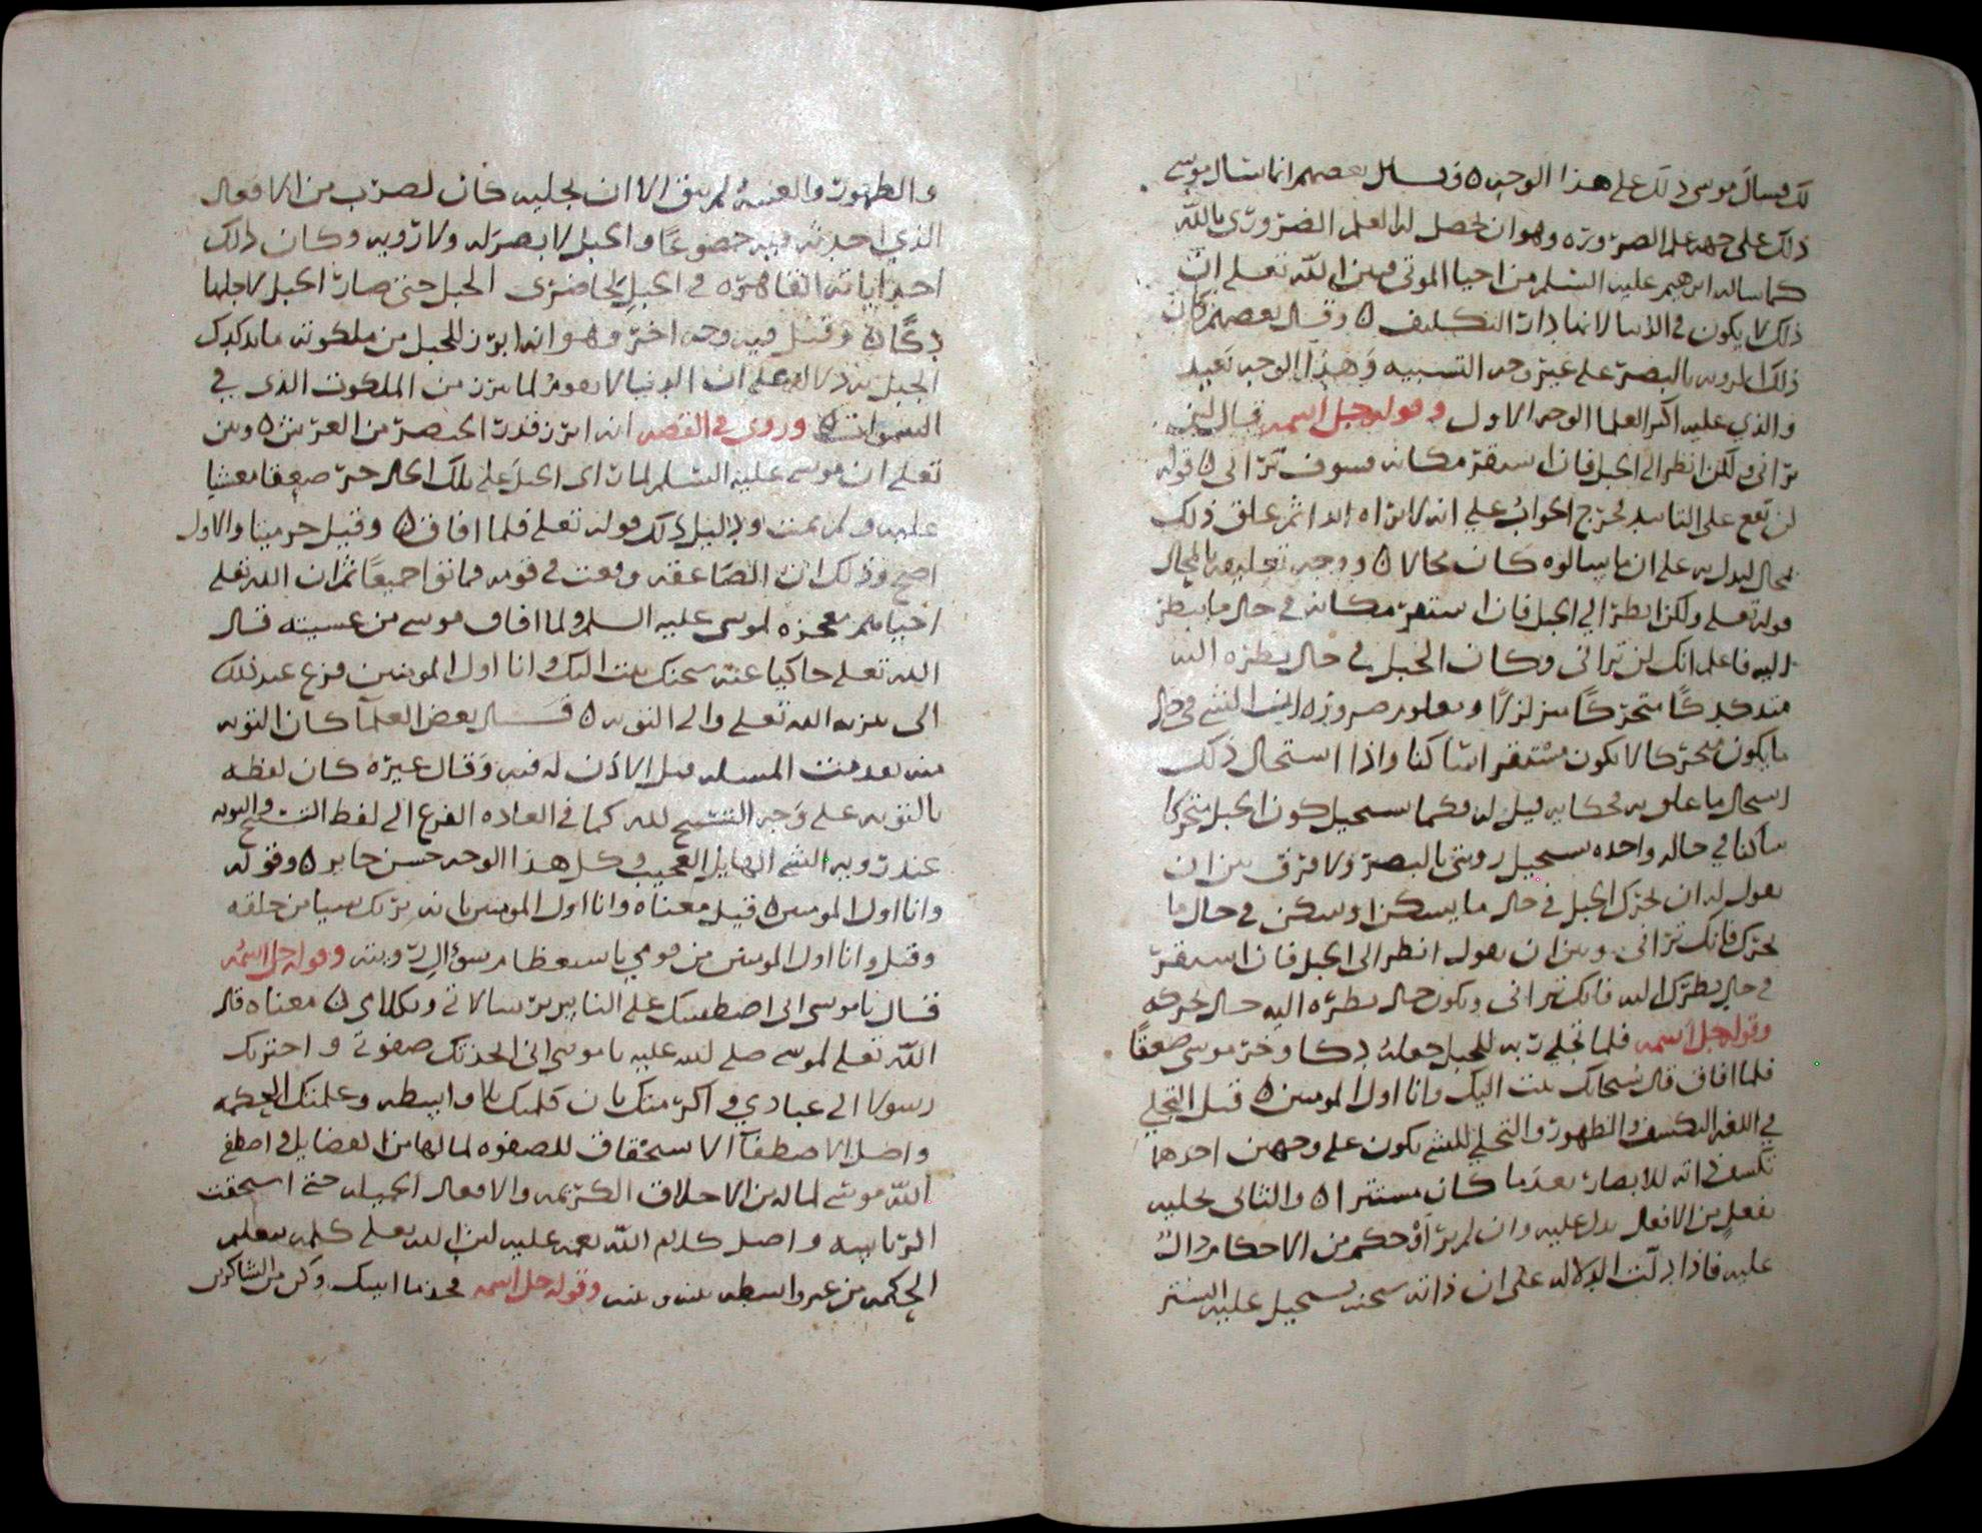 لك فسال موسى ذلك على هذا الوجه ٥ وقيل بعضهم انما سال موسى
ذلك على جهة علم الضرورة وهو ان يحصل له العلم الضروري بالله
كما ساله ابرهيم عليه السلم من احيا الموتى فبين الله تعلى ان
ذلك لا يكون في الدنيا لانها دار التكليف ٥ وقال بعضهم كان
ذلك الروية بالبصر على غير وجه التشبيه وهذا الوجه بعيد
والذي عليه اكثر العلما الوجه الاول وقوله جل اسمه قال لن
تراني ولكن انظر الى الجبل فان استقر مكانه فسوف تراني ٥ قوله
لن تقع على التابيد فخرج الجواب على انه لا يراه ابدا ثم علق ذلك
بمحال ليدل به على ان ما سالوه كان محالا ٥ ووجه تعليقه بالمحال
قوله تعلى ولكن انظر الى الجبل فان استقر مكانه في حال ما ينظر
اليه فاعلم انك لن تراني وكان الجبل في حال نظره اليه
متدكدكا متحركا متزلزلا ومعلوم ضرورة ان الشي في حال
ما يكون متحركا لا يكون مستقرا ساكنا واذا استحال ذلك
استحال ما علق به فكانه قيل له فكما يستحيل كون الجبل متحركا
ساكنا في حالة واحده يستحيل رويتي بالبصر ولا فرق بين ان
يقول له ان تحرك الجبل في حال ما يسكن او سكن في حال ما
تحرك فانك تراني وبين ان يقول انظر الى الجبل فان استقر
في حال نظرك اليه فانك تراني ويكون حال نظره اليه حال تحركه
وقوله جل اسمه فلما تجلى ربه للجبل جعله دكا وخر موسى صعقا
فلما افاق قال سبحانك تبت اليك وانا اول المومنين ٥ قيل التجلي
في اللغة الكشف والظهور والتجلي للشي يكون على وجهين احدهما
تكشف ذاته للابصار بعد ما كان مستترا ٥ والثاني تجليه
بفعل من الافعال يدل عليه وان لم ير او حكم من الاحكام دال
عليه فاذا دلت الدلاله على ان ذاته سبحنه يستحيل عليه الستر
والظهور والغيبة لم يبق الا ان تجليه كان لضرب من الافعال
الذي احدثه فيه خضوعا والجبل لا بصر له ولا روية وكان ذلك
احد اياته القاهرة في الجبل الحاضري الجبل حتى صار الجبل لاجلها
دكا ٥ وقيل فيه وجه اخر وهو انه ابرز للجبل من ملكوته ما تدكدك
الجبل به دلالة على ان الدنيا لا يقوم لما يبرز من الملكوت الذي في
السموات ٥ وروي في القصه انه ابرز قدر الخنصر من العرش ٥ وبين
تعلى ان موسى عليه السلم لما راى الجبل على تلك الحال خر صعقا مغشيا
عليه ولم يمت ودليل ذلك قوله تعلى فلما افاق ٥ وقيل خر ميتا والاول
اصح وذلك ان الصاعقه وقعت في قومه فماتوا جميعا ثم ان الله تعلى
احياهم معجزه لموسى عليه السلم ولما افاق موسى من غشيته قال
الله تعلى حاكيا عنه سبحنك تبت اليك وانا اول المومنين فزع عند ذلك
الى تنزيه الله تعلى والى التوبه ٥ قال بعض العلما كان التوبه
منه بعد منه المسله قبل الاذن له فيه وقال غيره كان لفظه
بالتوبه على وجه التسبيح لله كما في العاده الفزع الى لفظ التسبيح والتوبه
عند روية الشي الهايل العجيب وكل هذا الوجه حسن جايز ٥ وقوله
وانا اول المومنين ٥ قيل معناه وانا اول المومنين بانه لا يراك شيا من خلقه
وقيل وانا اول المومنين من قومي باستعظام سؤال رويته وقوله جل اسمه
قال يا موسى اني اصطفيتك على الناس برسالاتي وبكلامي ٥ معناه قال
الله تعلى لموسى صلى الله عليه يا موسى اني اتخذتك صفوتي واخترتك
رسولا الى عبادي واكرمتك بان كلمتك بلا واسطه وعلمتك الحكمه
واصل الاصطفآ الاستحقاق للصفوه لما لها من الفضايل واصطفى
الله موسى لما له من الاخلاق الكريمه والافعال الجميله حتى استحقت
الرتبه واصل كلام الله نعمه عليه لان الله تعلى كلمه بتعليم
الحكمه من غير واسطه بينه وبينه وقوله جل اسمه فخذ ما اتيتك وكن من الشاكرين